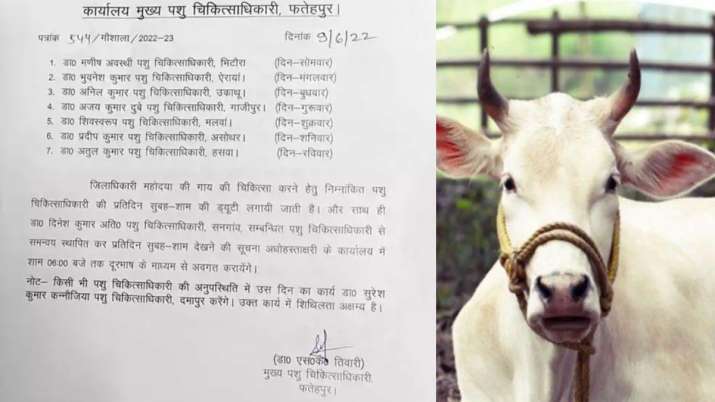 कार्यालय मुख्य पशु चिकित्साधिकारी, फतेहपुर।
पत्रांक 544/गौशाला/2022-23 दिनांक 9/6/22
1. डा0 मणीष अवस्थी पशु चिकित्साधिकारी, भिटौरा (दिन-सोमवार)
2. डा0 भुवनेश कुमार पशु चिकित्साधिकारी, ऐरायां। (दिन-मंगलवार)
3. डा0 अनिल कुमार पशु चिकित्साधिकारी, उकाथू। (दिन-बुधवार)
4. डा0 अजय कुमार दुबे पशु चिकित्साधिकारी, गाजीपुर। (दिन-गुरूवार)
5. डा0 शिवस्वरूप पशु चिकित्साधिकारी, मलवां। (दिन-शुक्रवार)
6. डा0 प्रदीप कुमार पशु चिकित्साधिकारी, असोथर। (दिन-शनिवार)
7. डा0 अतुल कुमार पशु चिकित्साधिकारी, हसवा। (दिन-रविवार)
जिलाधिकारी महोदया की गाय की चिकित्सा करने हेतु निम्नांकित पशु
चिकित्साधिकारी की प्रतिदिन सुबह-शाम की ड्यूटी लगायी जाती है। और साथ ही
डा0 दिनेश कुमार अति0 पशु चिकित्साधिकारी, सनगांव, सम्बन्धित पशु चिकित्साधिकारी से
समन्वय स्थापित कर प्रतिदिन सुबह-शाम देखने की सूचना अधोहस्ताक्षरी के कार्यालय में
शाम 06:00 बजे तक दूरभाष के माध्यम से अवगत करायेंगे।
नोट- किसी भी पशु चिकित्साधिकारी की अनुपस्थिति में उस दिन का कार्य डा0 सुरेश
कुमार कन्नौजिया पशु चिकित्साधिकारी, दमापुर करेंगे। उक्त कार्य में शिथिलता अक्षम्य है।
(डा0 एस0के0 तिवारी)
मुख्य पशु चिकित्साधिकारी,
फतेहपुर।